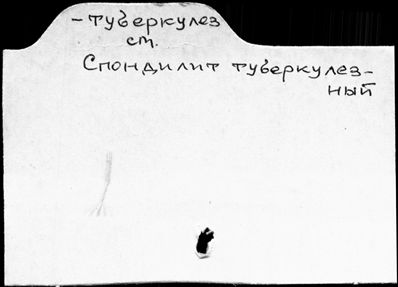 - туберкулез
ст.
Спондилит туберкулез-
ный